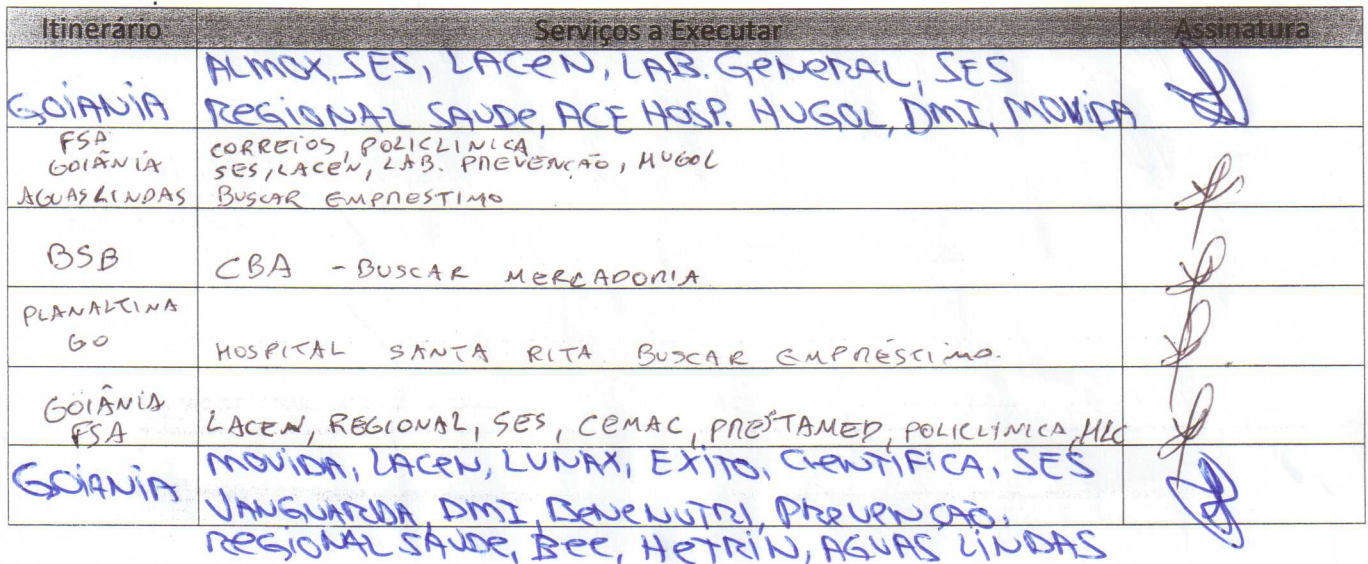 Itinerário Serviços a Executar Assinatura
ALMOX, SES, LACEN, LAB. GENERAL, SES
GOIANIA REGIONAL SAUDE, ACE HOSP. HUGOL, DMI, MOVIDA
FSA CORREIOS, POLICLINICA
GOIÂNIA SES, LACEN, LAB. PREVENÇÃO, HUGOL
AGUAS LINDAS BUSCAR EMPRESTIMO
BSB CBA - BUSCAR MERCADORIA
PLANALTINA
GO HOSPITAL SANTA RITA BUSCAR EMPRÉSTIMO.
GOIÂNIA
FSA LACEN, REGIONAL, SES, CEMAC, PRESTAMED, POLICLINICA, HLC
MOVIDA, LACEN, LUNAX, EXITO, CIENTIFICA, SES
GOIANIA VANGUARDA, DMI, BENENUTRI, PREVENÇÃO,
REGIONAL SAUDE, BEE, HETRIN, AGUAS LINDAS